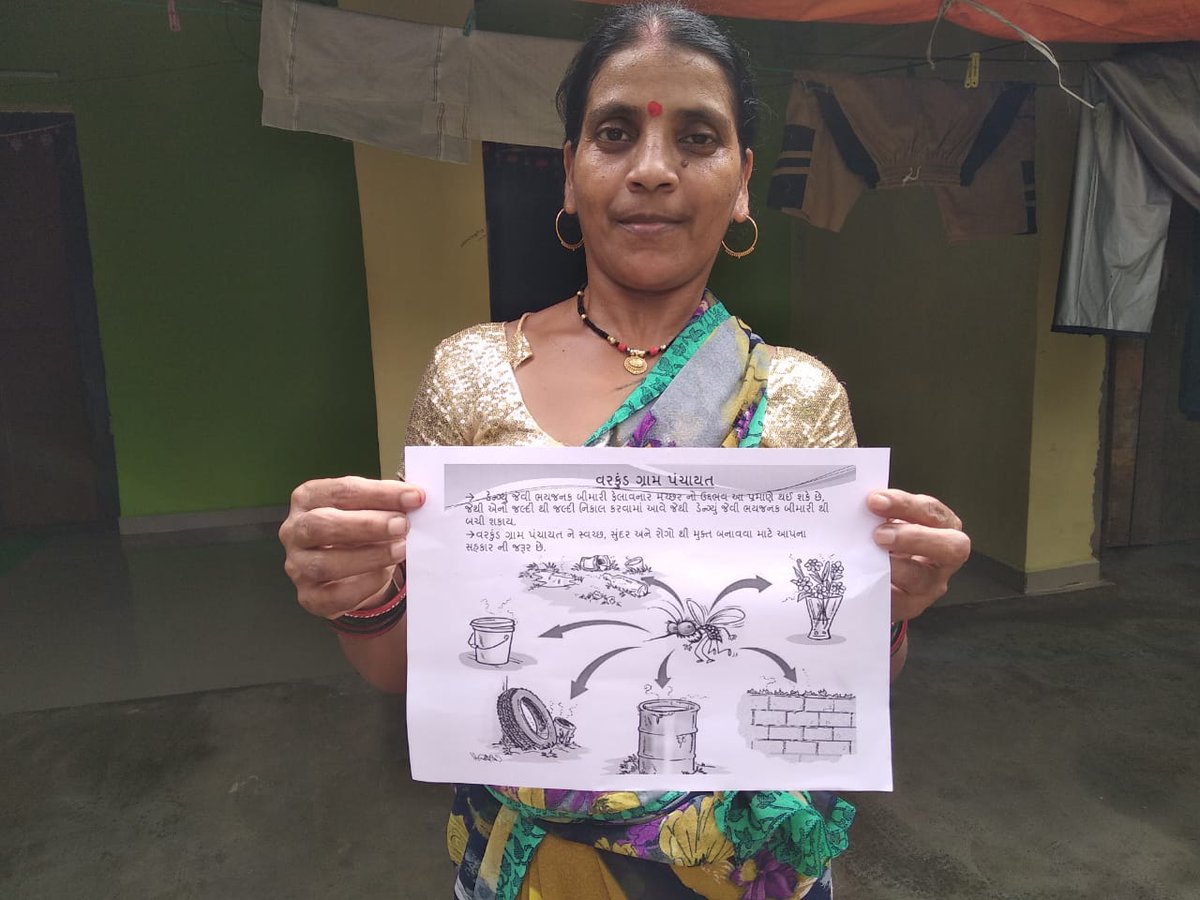 વરકુંડ ગ્રામ પંચાયત
→ ડેન્ગ્યું જેવી ભયજનક બીમારી ફેલાવનાર મચ્છર નો ઉદ્ભવ આ પ્રમાણે થઈ શકે છે,
જેથી એનો જલ્દી થી જલ્દી નિકાલ કરવામાં આવે જેથી ડેન્ગ્યું જેવી ભયજનક બીમારી થી
બચી શકાય.
→વરકુંડ ગ્રામ પંચાયત ને સ્વચ્છ, સુંદર અને રોગો થી મુક્ત બનાવવા માટે આપના
સહકાર ની જરૂર છે.